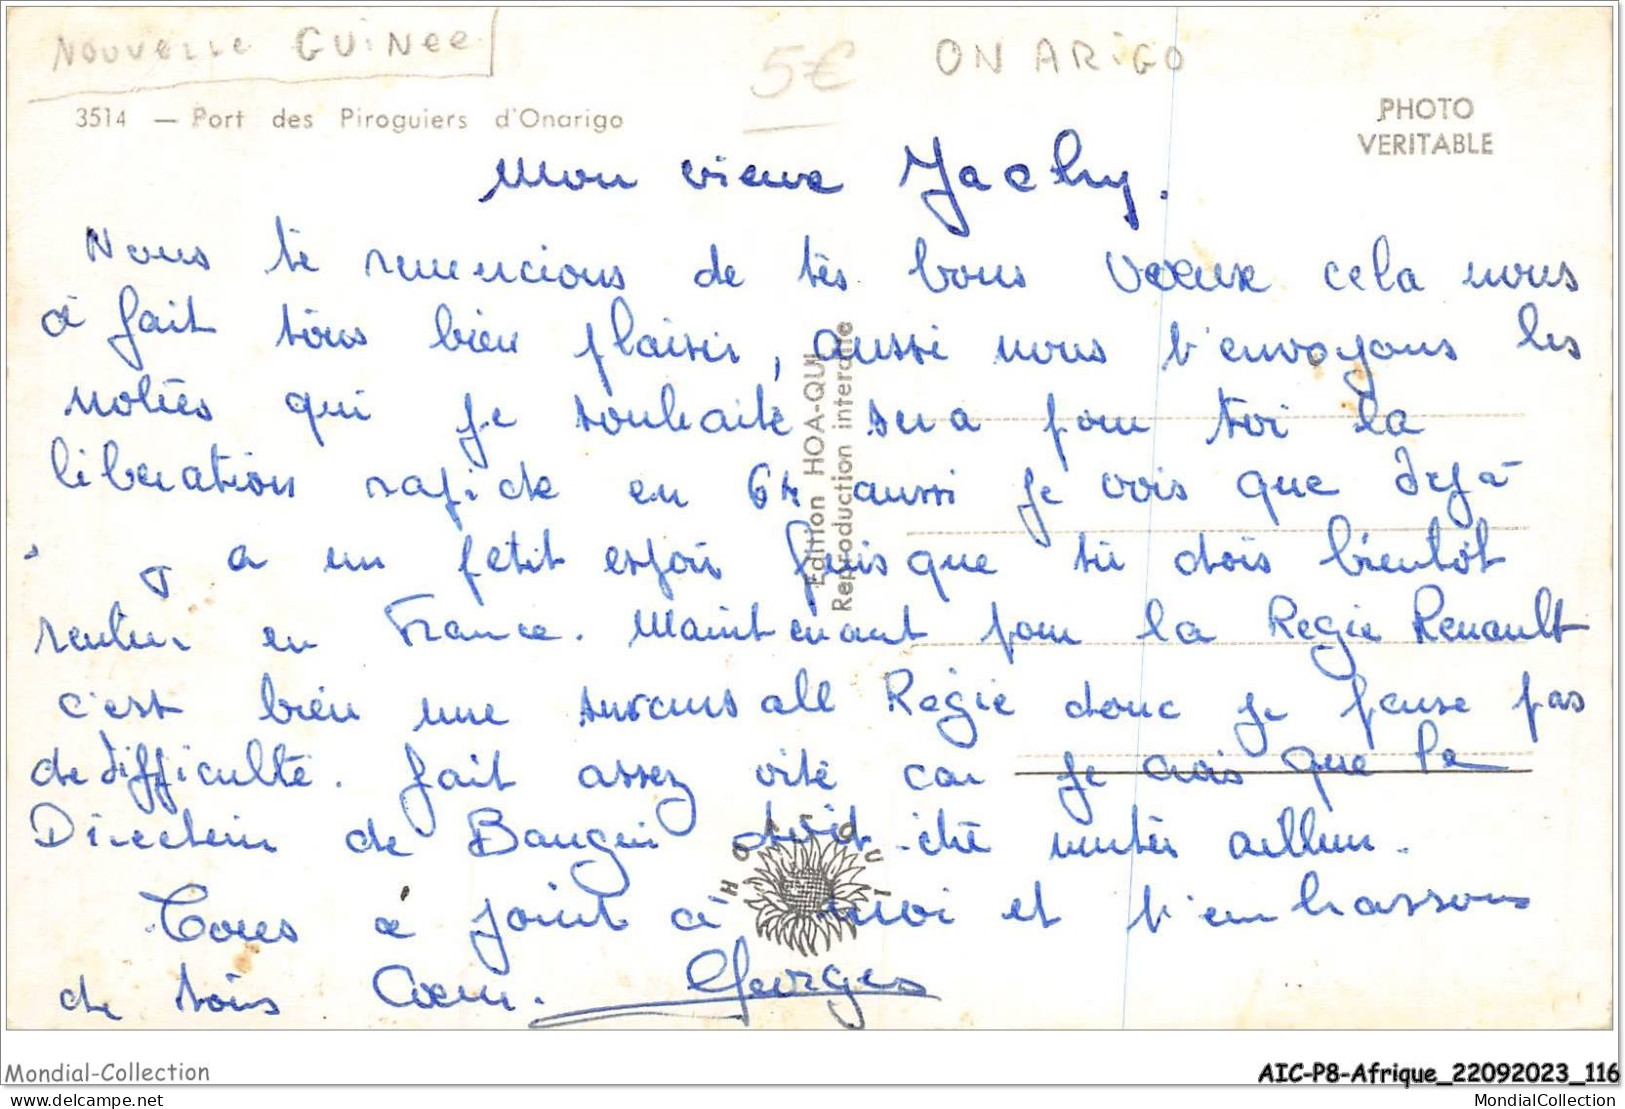 NOUVELLE GUINEE
5€
ON ARIGO
3514 — Port des Piroguiers d'Onarigo
PHOTO
VERITABLE
Mon vieux Jacky.
Nous te remercions de tes bons Voeux cela nous
à fait tous bien plaisir, aussi nous t'envoyons les
notres qui je souhaite sera pour toi la
liberation rapide en 64 aussi je vois que déjà
y a un petit espoir puisque tu dois bientôt
rentrer en France. Maintenant pour la Regie Renault
c'est bien une surcursall Regie donc je pense pas
de difficulté. fait assez vite car je crois que le
Directeur de Bauger doit etre muter ailleur.
Tous à joint à moi et t'embrassons
de tous Coeur. Georges
Edition HOA-QUI
Reproduction interdite
HOA-QUI
Mondial-Collection
AIC-P8-Afrique_22092023_116
mondialcollection
MondialCollection